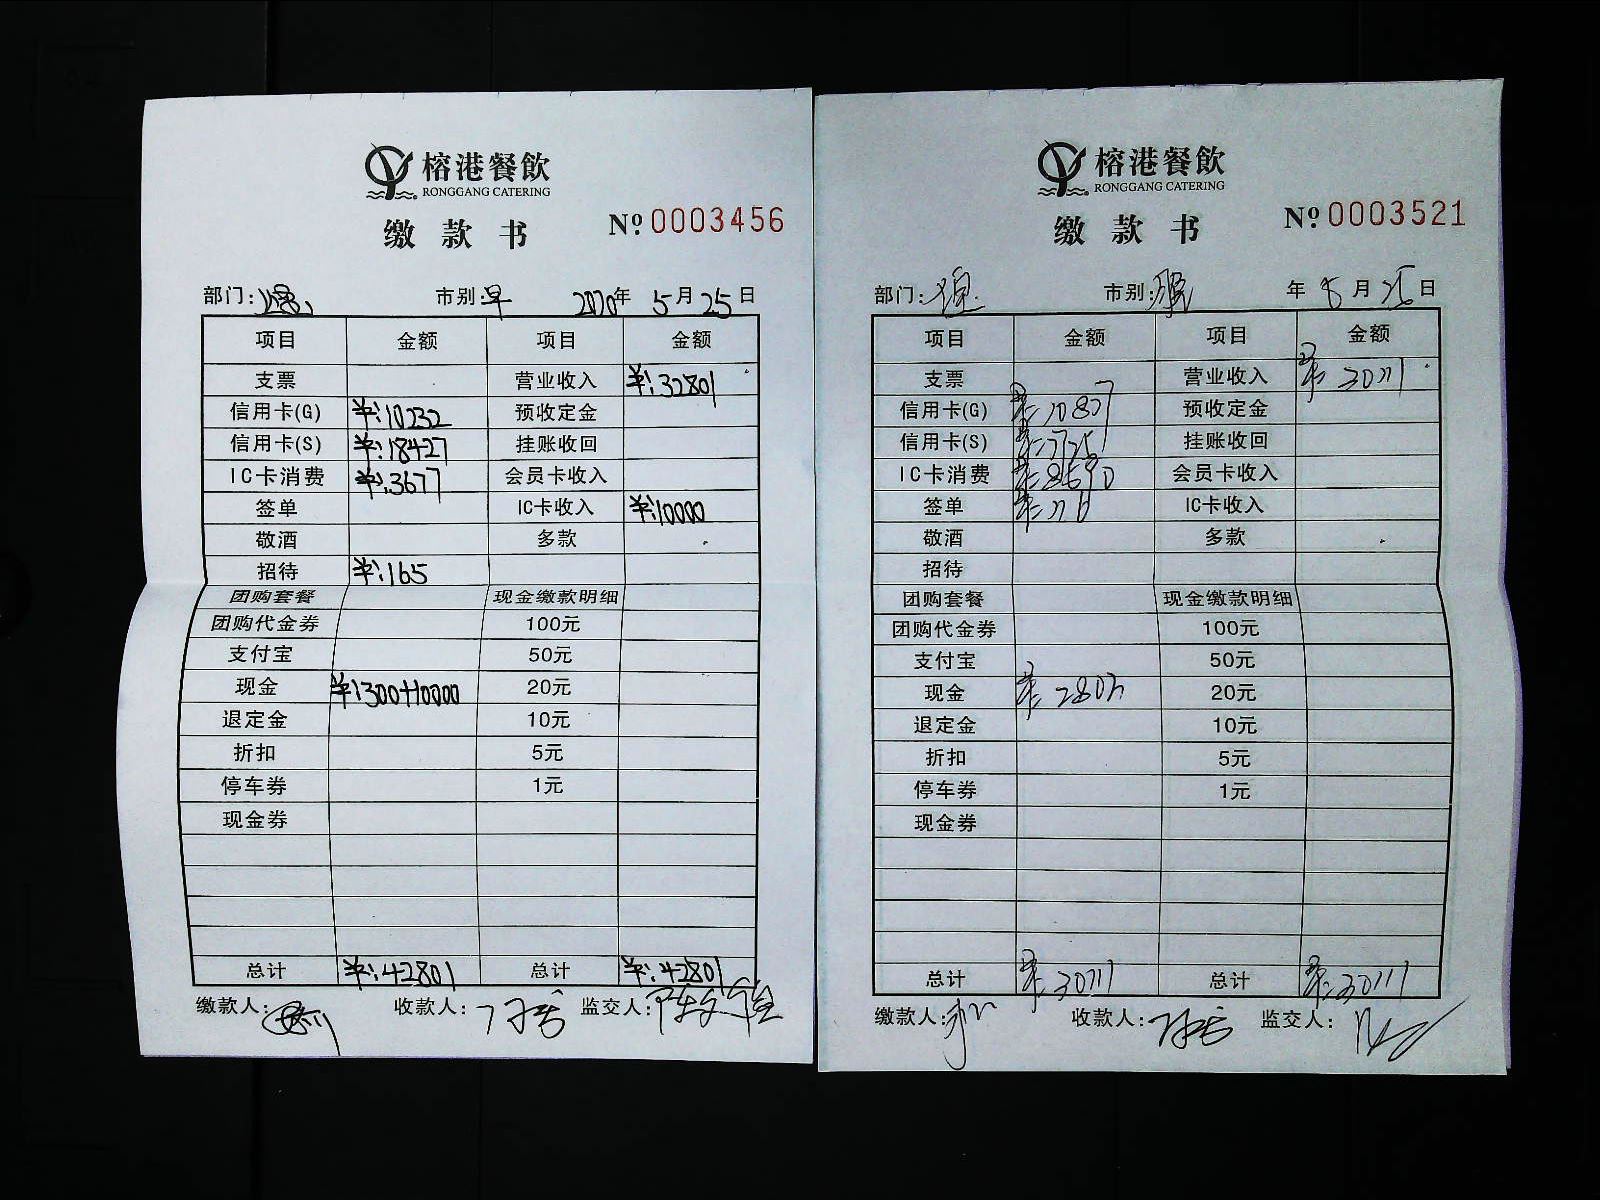 榕港餐飲
RONGGANG CATERING
缴款书 № 0003456
部门: 市别:早 2020年5月25日
项目 金额 项目 金额
支票 营业收入 ¥:32801
信用卡(G) ¥:10232 预收定金
信用卡(S) ¥:18427 挂账收回
IC卡消费 ¥:3677 会员卡收入
签单 IC卡收入 ¥:10000
敬酒 多款
招待 ¥:165
团购套餐 现金缴款明细
团购代金券 100元
支付宝 50元
现金 ¥:300+10000 20元
退定金 10元
折扣 5元
停车券 1元
现金券
总计 ¥:42801 总计 ¥:42801
缴款人: 收款人: 监交人:
榕港餐飲
RONGGANG CATERING
缴款书 № 0003521
部门: 市别: 年5月25日
项目 金额 项目 金额
支票 营业收入
信用卡(G) 预收定金
信用卡(S) 挂账收回
IC卡消费 会员卡收入
签单 IC卡收入
敬酒 多款
招待
团购套餐 现金缴款明细
团购代金券 100元
支付宝 50元
现金 20元
退定金 10元
折扣 5元
停车券 1元
现金券
总计 总计
缴款人: 收款人: 监交人: